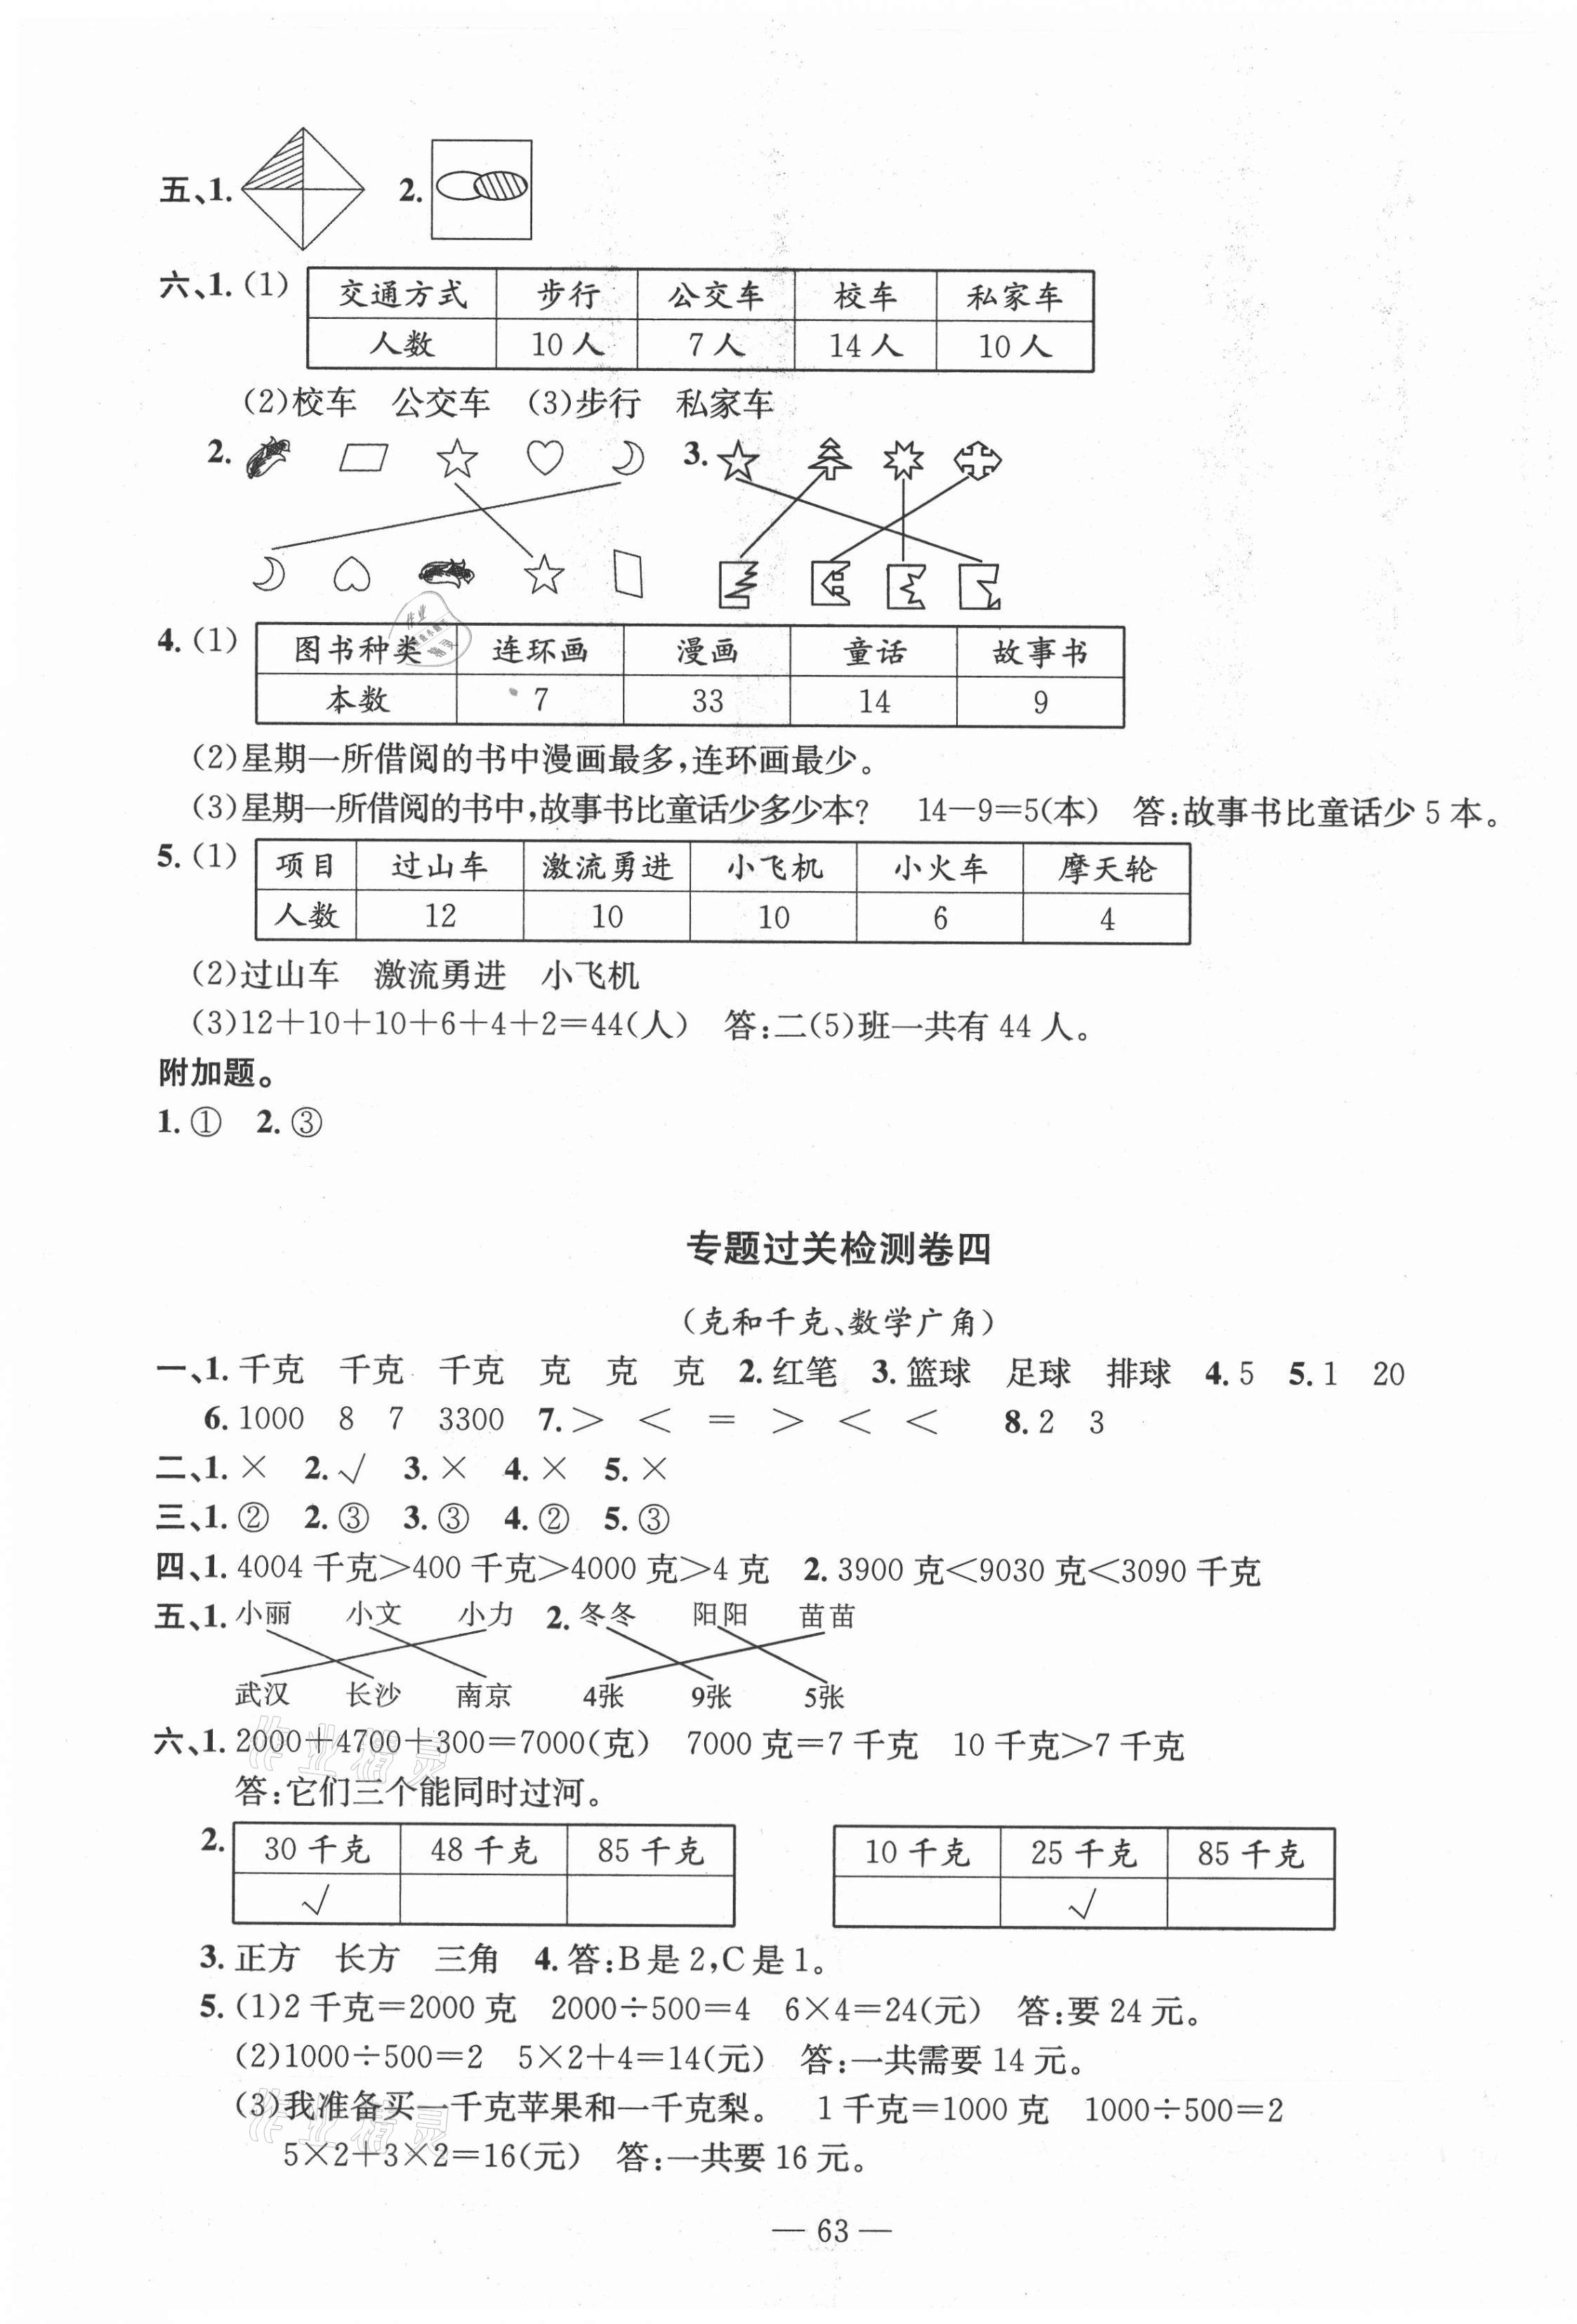 五、1. 2.
六、1.(1) 交通方式 步行 公交车 校车 私家车
人数 10人 7人 14人 10人
(2)校车 公交车 (3)步行 私家车
2. 3.
4.(1) 图书种类 连环画 漫画 童话 故事书
本数 7 33 14 9
(2)星期一所借阅的书中漫画最多,连环画最少。
(3)星期一所借阅的书中,故事书比童话少多少本? 14-9=5(本) 答:故事书比童话少5本。
5.(1) 项目 过山车 激流勇进 小飞机 小火车 摩天轮
人数 12 10 10 6 4
(2)过山车 激流勇进 小飞机
(3)12+10+10+6+4+2=44(人) 答:二(5)班一共有44人。
附加题。
1.① 2.③
专题过关检测卷四
(克和千克、数学广角)
一、1.千克 千克 千克 克 克 克 2.红笔 3.篮球 足球 排球 4.5 5.1 20
6.1000 8 7 3300 7.> < = > < < 8.2 3
二、1.× 2.√ 3.× 4.× 5.×
三、1.② 2.③ 3.③ 4.② 5.③
四、1.4004千克>400千克>4000克>4克 2.3900克<9030克<3090千克
五、1.小丽 小文 小力 2.冬冬 阳阳 苗苗
武汉 长沙 南京 4张 9张 5张
六、1.2000+4700+300=7000(克) 7000克=7千克 10千克>7千克
答:它们三个能同时过河。
2. 30千克 48千克 85千克 10千克 25千克 85千克
√ √
3.正方 长方 三角 4.答:B是2,C是1。
5.(1)2千克=2000克 2000÷500=4 6×4=24(元) 答:要24元。
(2)1000÷500=2 5×2+4=14(元) 答:一共需要14元。
(3)我准备买一千克苹果和一千克梨。 1千克=1000克 1000÷500=2
5×2+3×2=16(元) 答:一共要16元。
— 63 —
作业精灵
作业精灵